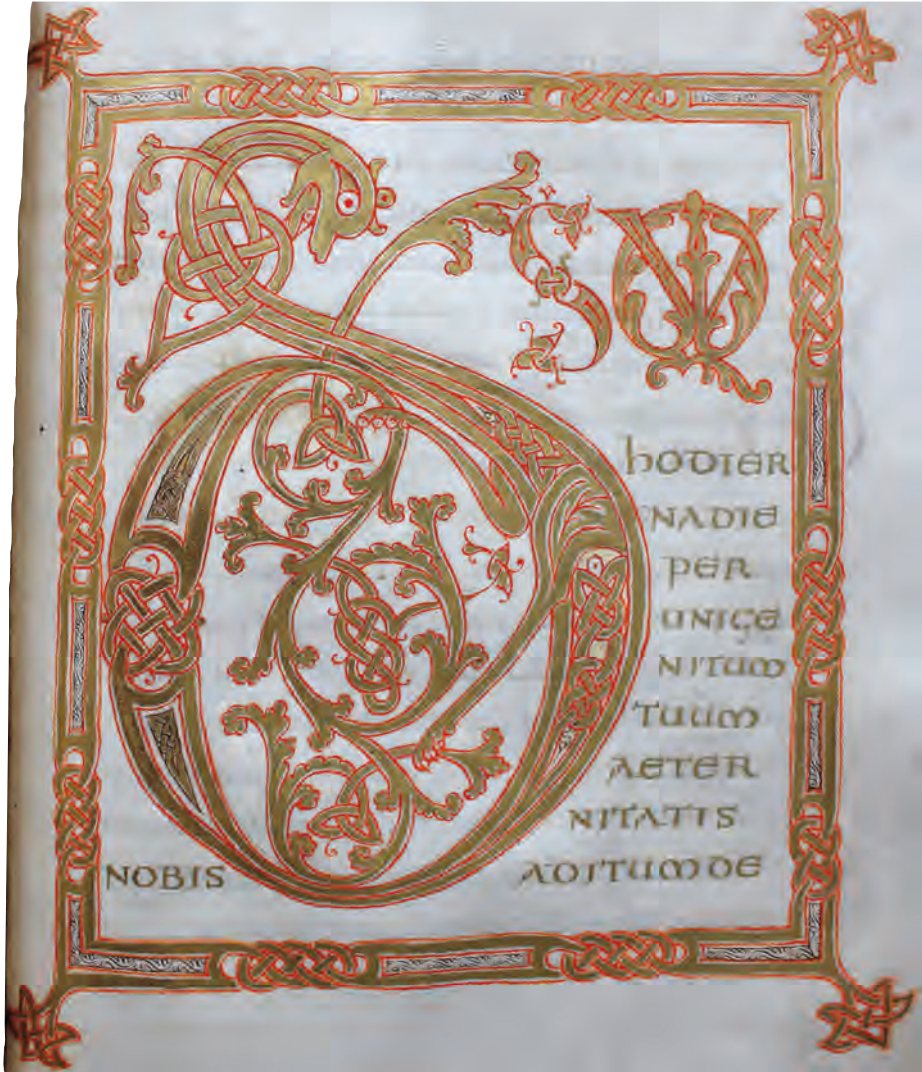 DS QVI
hODIER
NADIE
PER
UNIGE
NITUM
TUUM
AETER
NITATIS
NOBIS ADITUM DE